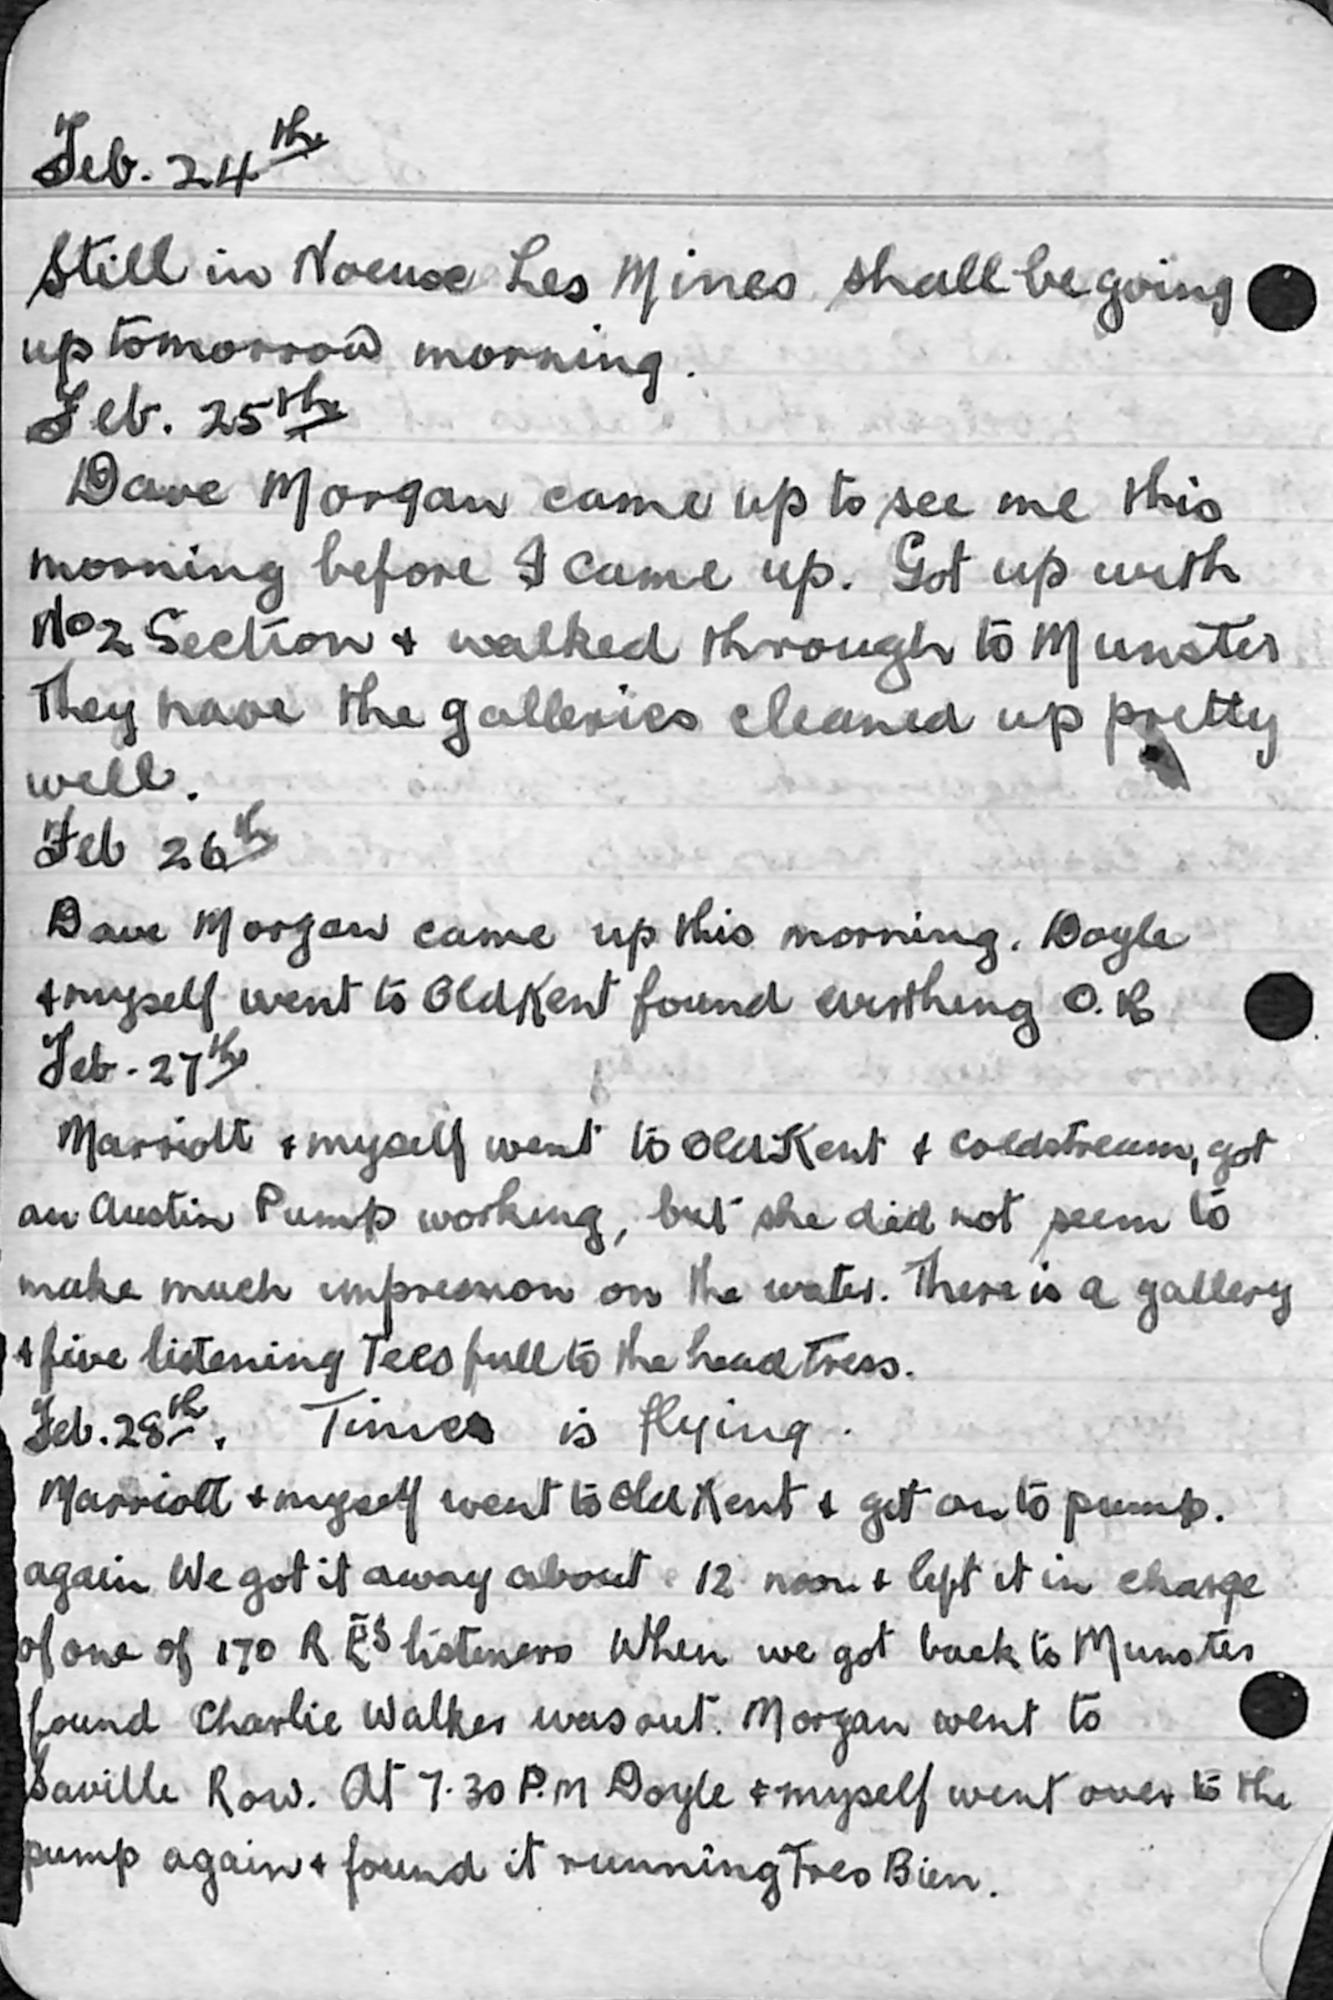 Feb. 24th
Still in Noeuxe Les Mines shall be going
up tomorrow morning.
Feb. 25th
Dave Morgan came up to see me this
morning before I came up. Got up with
No 2 Section + walked through to Munster
They have the galleries cleaned up pretty
well.
Feb 26th
Dave Morgan came up this morning. Doyle
+ myself went to Old Kent found everthing O.K
Feb. 27th
Marriott + myself went to Old Kent + Coldstream, got
an Austin Pump working, but she did not seem to
make much impression on the water. There is a gallery
+ five listening Tees full to the head Tress.
Feb. 28th. Time is flying.
Marriott + myself went to Old Kent + got on to pump.
again We got it away about 12 noon + left it in charge
of one of 170 R E's listeners When we got back to Munster
found Charlie Walker was out. Morgan went to
Saville Row. At 7.30 P.M Doyle + myself went over to the
pump again + found it running Tres Bien.